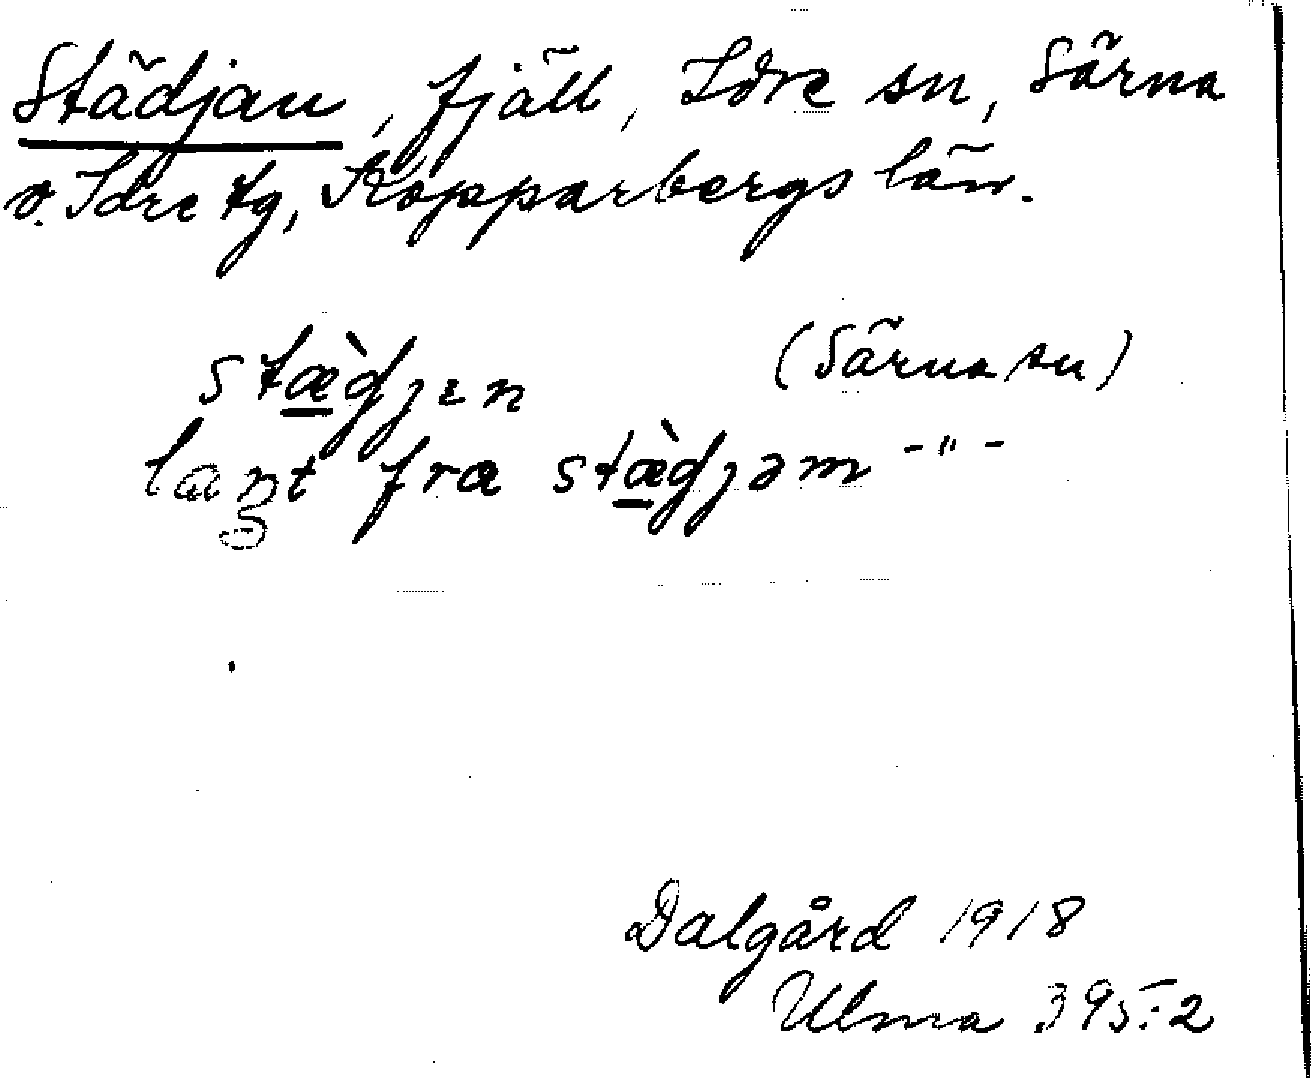 Städjan, fjäll, Idre sn, Särna
o. Idre tg, Kopparbergs län.
stæ̀djɛn (Särna sn)
laŋt fra stæ̀djəm -"-
Dalgård 1918
Ulma 395:2